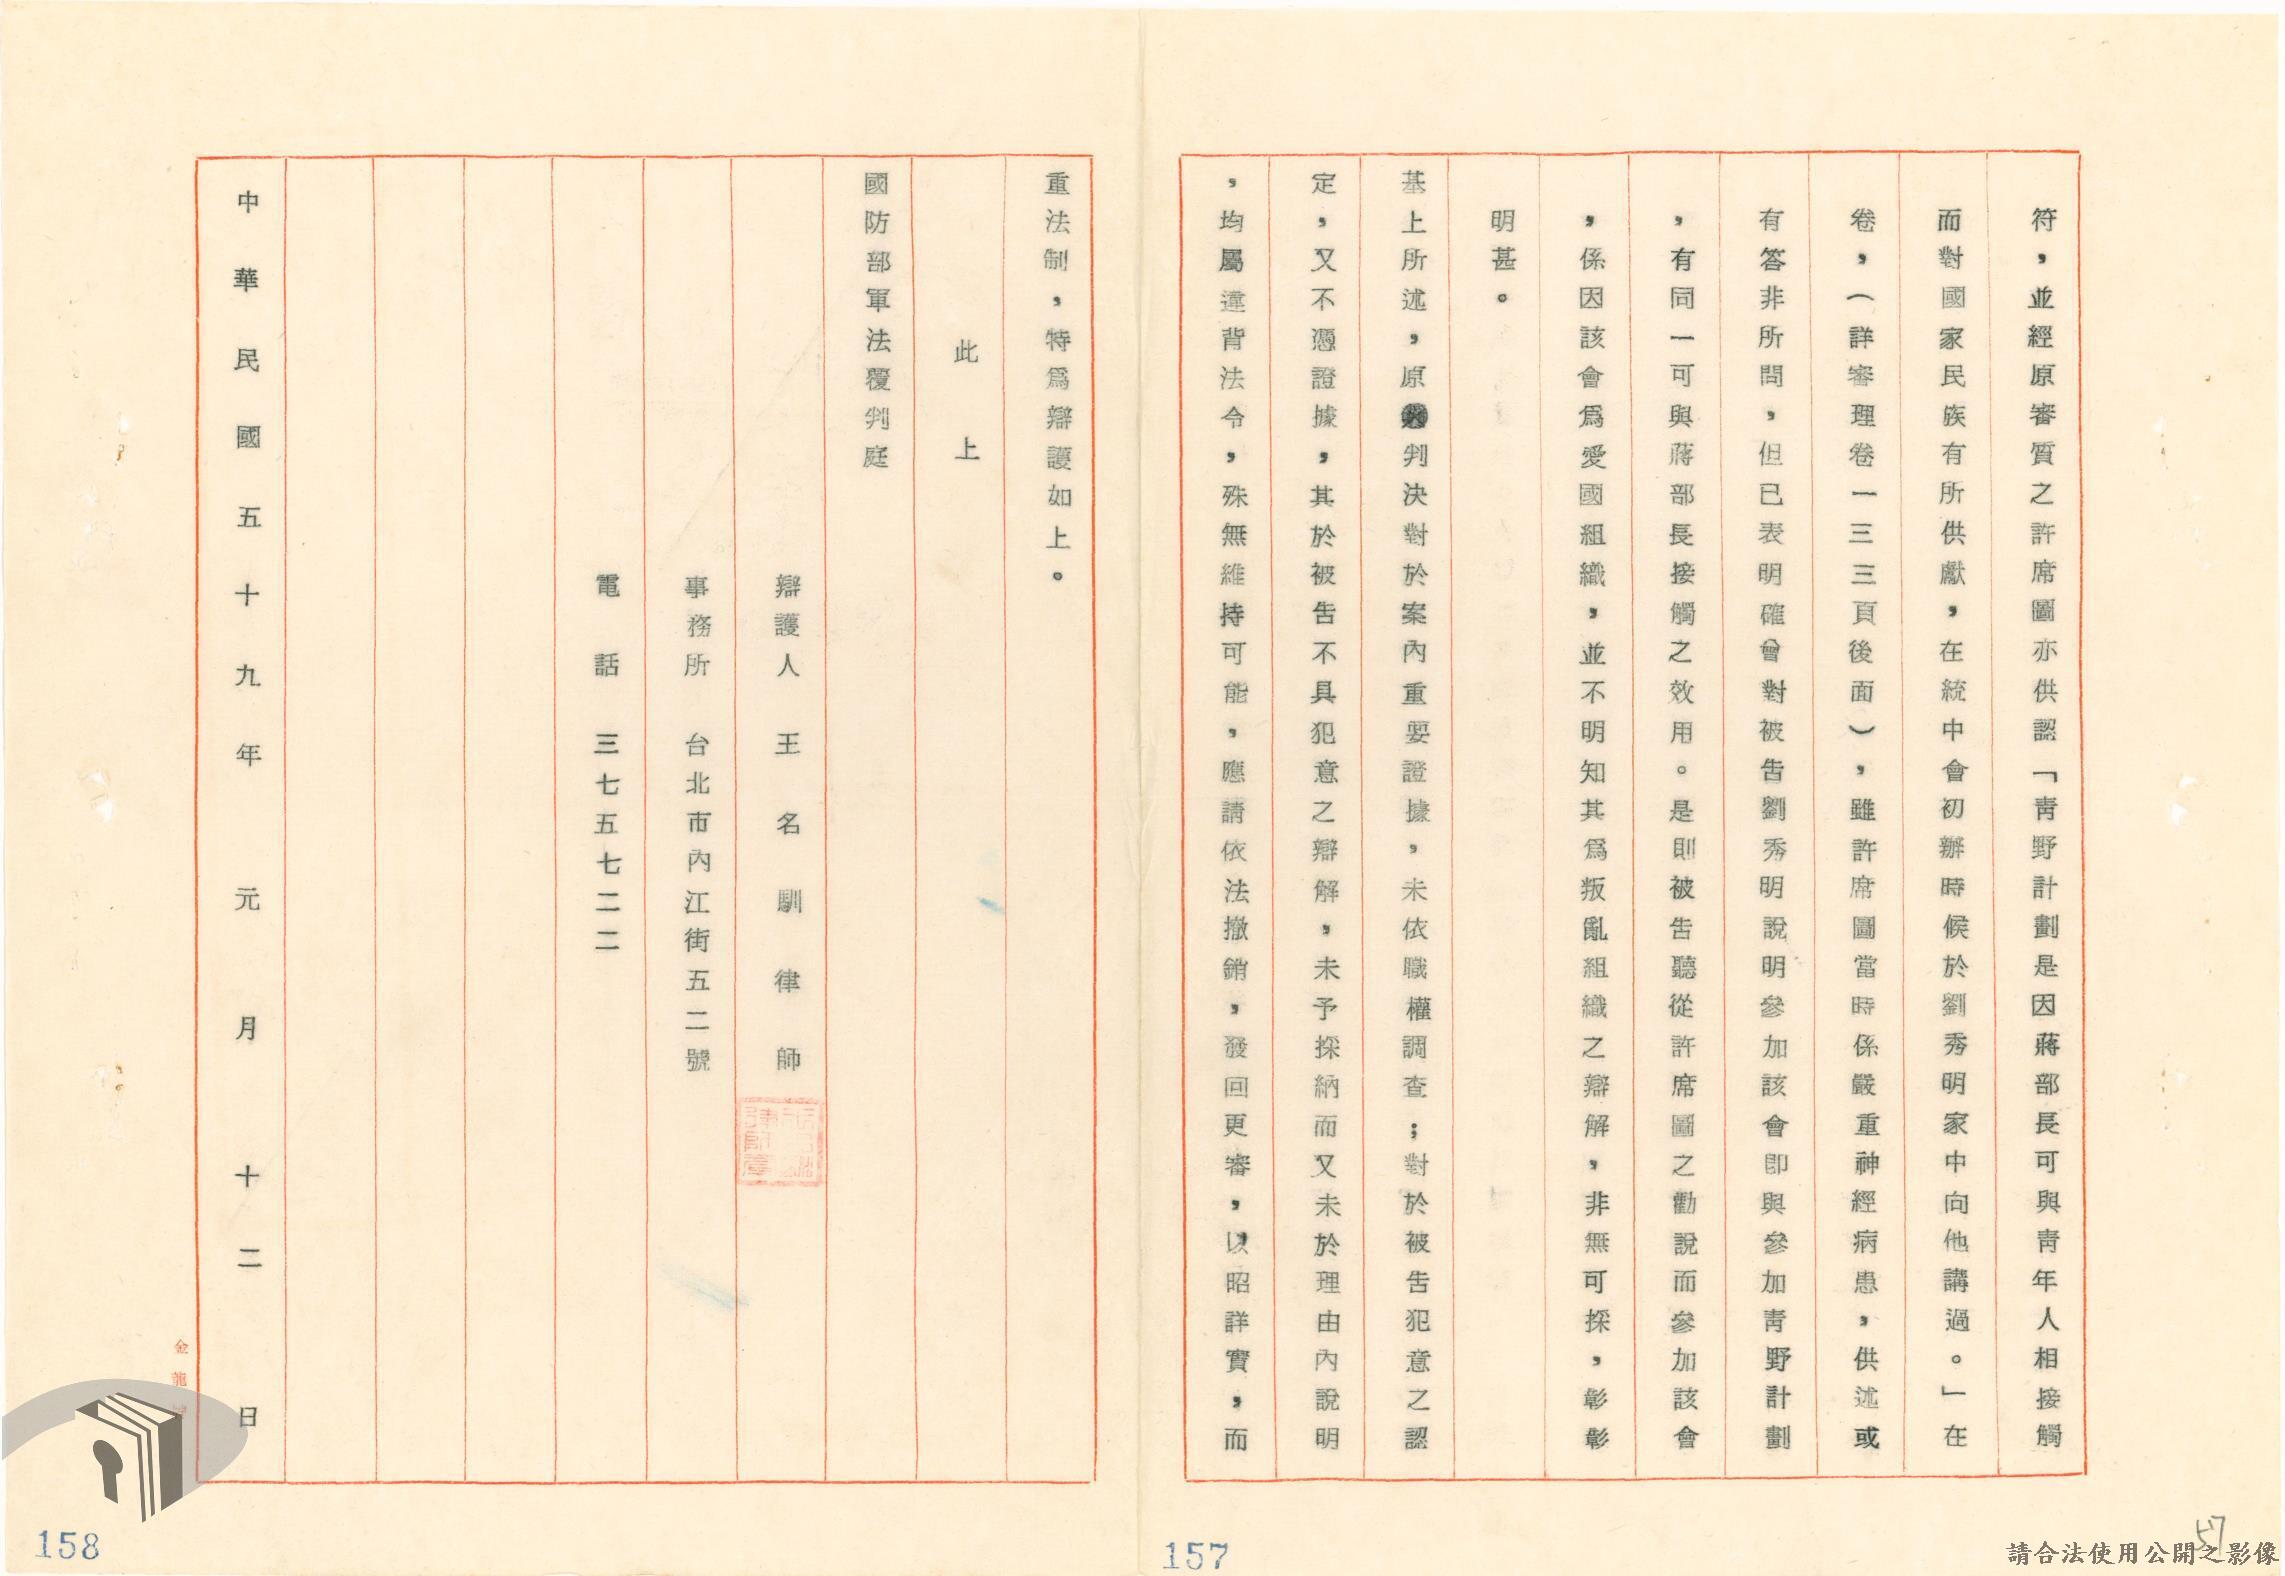 符，並經原審質之許席圖亦供認「靑野計劃是因蔣部長可與靑年人相接觸
而對國家民族有所供獻，在統中會初辦時候於劉秀明家中向他講過。」在
卷，（詳審理卷一三三頁後面），雖許席圖當時係嚴重神經病患，供述或
有答非所問，但已表明確曾對被告劉秀明說明參加該會卽與參加靑野計劃
，有同一可與蔣部長接觸之效用。是則被告聽從許席圖之勸說而參加該會
，係因該會爲愛國組織，並不明知其爲叛亂組織之辯解，非無可採，彰彰
明甚。
基上所述，原判決對於案內重要證據，未依職權調查；對於被告犯意之認
定，又不憑證據，其於被告不具犯意之辯解，未予採納而又未於理由內說明
，均屬違背法令，殊無維持可能，應請依法撤銷，發回更審，以昭詳實，而
157
57
重法制，特爲辯護如上。
此上
國防部軍法覆判庭
辯護人 王名馴律師
事務所 台北市內江街五二號
電話 三七五七二二
中華民國五十九年 元月 十二日
金龍
158
請合法使用公開之影像